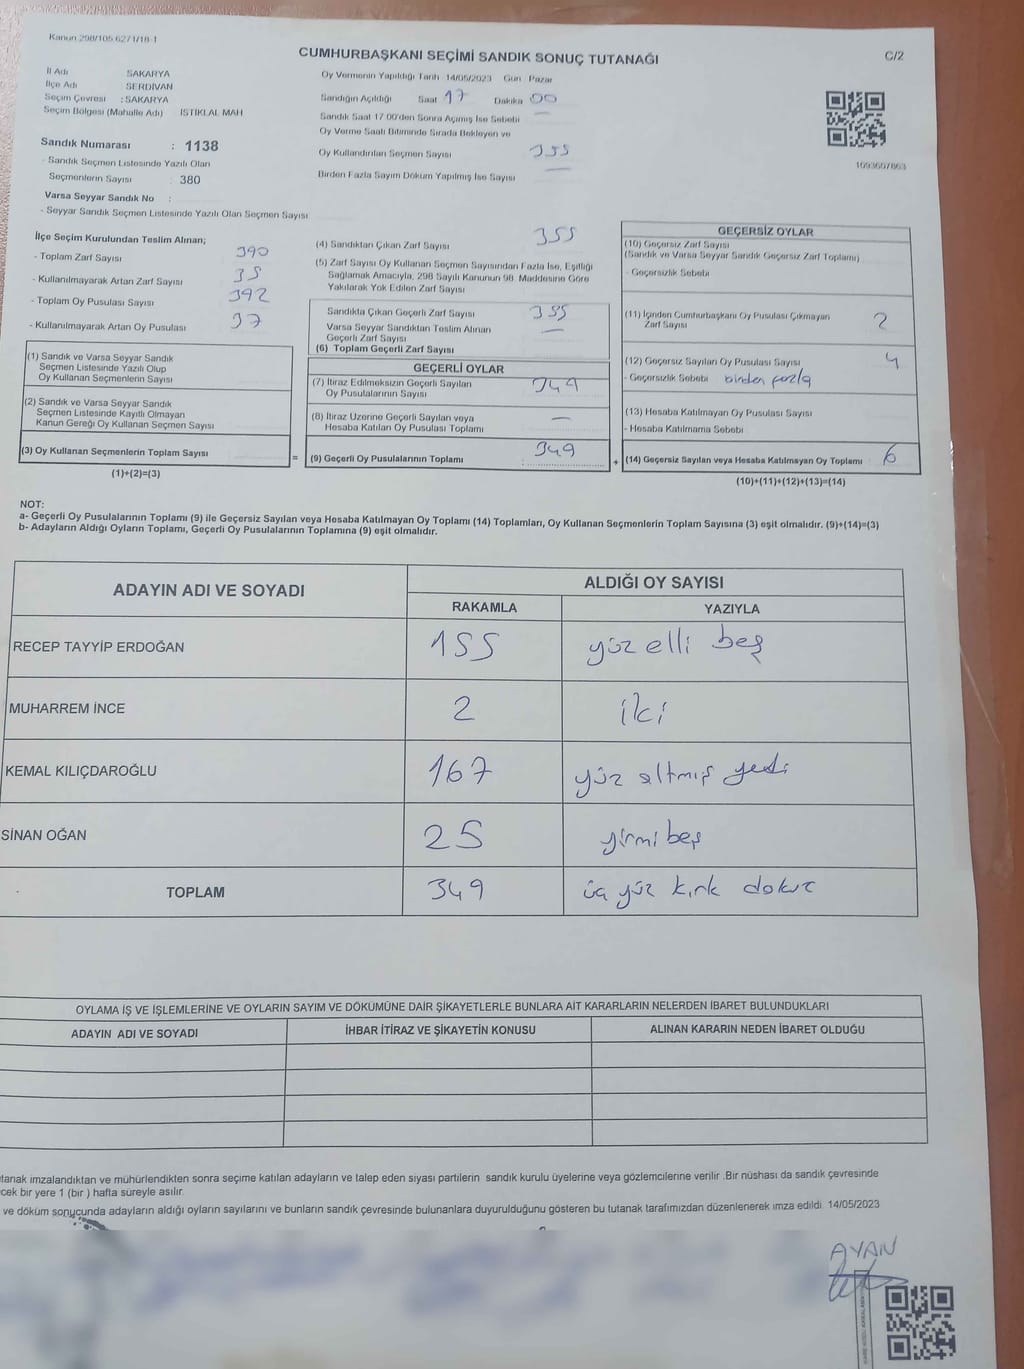 Kanun 298/105 6271/18-1
CUMHURBAŞKANI SEÇİMİ SANDIK SONUÇ TUTANAĞI
C/2
İl Adı SAKARYA
İlçe Adı SERDİVAN
Seçim Çevresi : SAKARYA
Seçim Bölgesi (Mahalle Adı) İSTİKLAL MAH
Sandık Numarası : 1138
- Sandık Seçmen Listesinde Yazılı Olan
Seçmenlerin Sayısı : 380
Varsa Seyyar Sandık No :
- Seyyar Sandık Seçmen Listesinde Yazılı Olan Seçmen Sayısı
Oy Vermenin Yapıldığı Tarih 14/05/2023 Gün Pazar
Sandığın Açıldığı Saat 17 Dakika 00
Sandık Saat 17 00'den Sonra Açımış İse Sebebi —
Oy Verme Saati Bitiminde Sırada Bekleyen ve
Oy Kullandırılan Seçmen Sayısı 355
Birden Fazla Sayım Döküm Yapılmış İse Sayısı —
1093607863
İlçe Seçim Kurulundan Teslim Alınan;
- Toplam Zarf Sayısı 390
- Kullanılmayarak Artan Zarf Sayısı 35
- Toplam Oy Pusulası Sayısı 392
- Kullanılmayarak Artan Oy Pusulası 37
(1) Sandık ve Varsa Seyyar Sandık
Seçmen Listesinde Yazılı Olup
Oy Kullanan Seçmenlerin Sayısı
(2) Sandık ve Varsa Seyyar Sandık
Seçmen Listesinde Kayıtlı Olmayan
Kanun Gereği Oy Kullanan Seçmen Sayısı
(3) Oy Kullanan Seçmenlerin Toplam Sayısı
(1)+(2)=(3)
=
(4) Sandıktan Çıkan Zarf Sayısı 355
(5) Zarf Sayısı Oy Kullanan Seçmen Sayısından Fazla İse, Eşitliği
Sağlamak Amacıyla, 298 Sayılı Kanunun 98. Maddesine Göre
Yakılarak Yok Edilen Zarf Sayısı
Sandıkta Çıkan Geçerli Zarf Sayısı 355
Varsa Seyyar Sandıktan Teslim Alınan —
Geçerli Zarf Sayısı
(6) Toplam Geçerli Zarf Sayısı
GEÇERLİ OYLAR
(7) İtiraz Edilmeksizin Geçerli Sayılan 349
Oy Pusulalarının Sayısı
(8) İtiraz Üzerine Geçerli Sayılan veya —
Hesaba Katılan Oy Pusulası Toplamı
(9) Geçerli Oy Pusulalarının Toplamı 349
+
GEÇERSİZ OYLAR
(10) Geçersiz Zarf Sayısı
(Sandık ve Varsa Seyyar Sandık Geçersiz Zarf Toplamı)
- Geçersizlik Sebebi
(11) İçinden Cumhurbaşkanı Oy Pusulası Çıkmayan 2
Zarf Sayısı
(12) Geçersiz Sayılan Oy Pusulası Sayısı 4
- Geçersizlik Sebebi birden fazla
(13) Hesaba Katılmayan Oy Pusulası Sayısı
- Hesaba Katılmama Sebebi
(14) Geçersiz Sayılan veya Hesaba Katılmayan Oy Toplamı 6
(10)+(11)+(12)+(13)=(14)
NOT:
a- Geçerli Oy Pusulalarının Toplamı (9) ile Geçersiz Sayılan veya Hesaba Katılmayan Oy Toplamı (14) Toplamları, Oy Kullanan Seçmenlerin Toplam Sayısına (3) eşit olmalıdır. (9)+(14)=(3)
b- Adayların Aldığı Oyların Toplamı, Geçerli Oy Pusulalarının Toplamına (9) eşit olmalıdır.
ADAYIN ADI VE SOYADI ALDIĞI OY SAYISI
RAKAMLA YAZIYLA
RECEP TAYYİP ERDOĞAN 155 yüz elli beş
MUHARREM İNCE 2 iki
KEMAL KILIÇDAROĞLU 167 yüz altmış yedi
SİNAN OĞAN 25 yirmi beş
TOPLAM 349 üç yüz kırk dokuz
OYLAMA İŞ VE İŞLEMLERİNE VE OYLARIN SAYIM VE DÖKÜMÜNE DAİR ŞİKAYETLERLE BUNLARA AİT KARARLARIN NELERDEN İBARET BULUNDUKLARI
ADAYIN ADI VE SOYADI İHBAR İTİRAZ VE ŞİKAYETİN KONUSU ALINAN KARARIN NEDEN İBARET OLDUĞU
tanak imzalandıktan ve mühürlendikten sonra seçime katılan adayların ve talep eden siyasi partilerin sandık kurulu üyelerine veya gözlemcilerine verilir .Bir nüshası da sandık çevresinde
cek bir yere 1 (bir ) hafta süreyle asılır.
ve döküm sonucunda adayların aldığı oyların sayılarını ve bunların sandık çevresinde bulunanlara duyurulduğunu gösteren bu tutanak tarafımızdan düzenlenerek imza edildi. 14/05/2023
AYAN